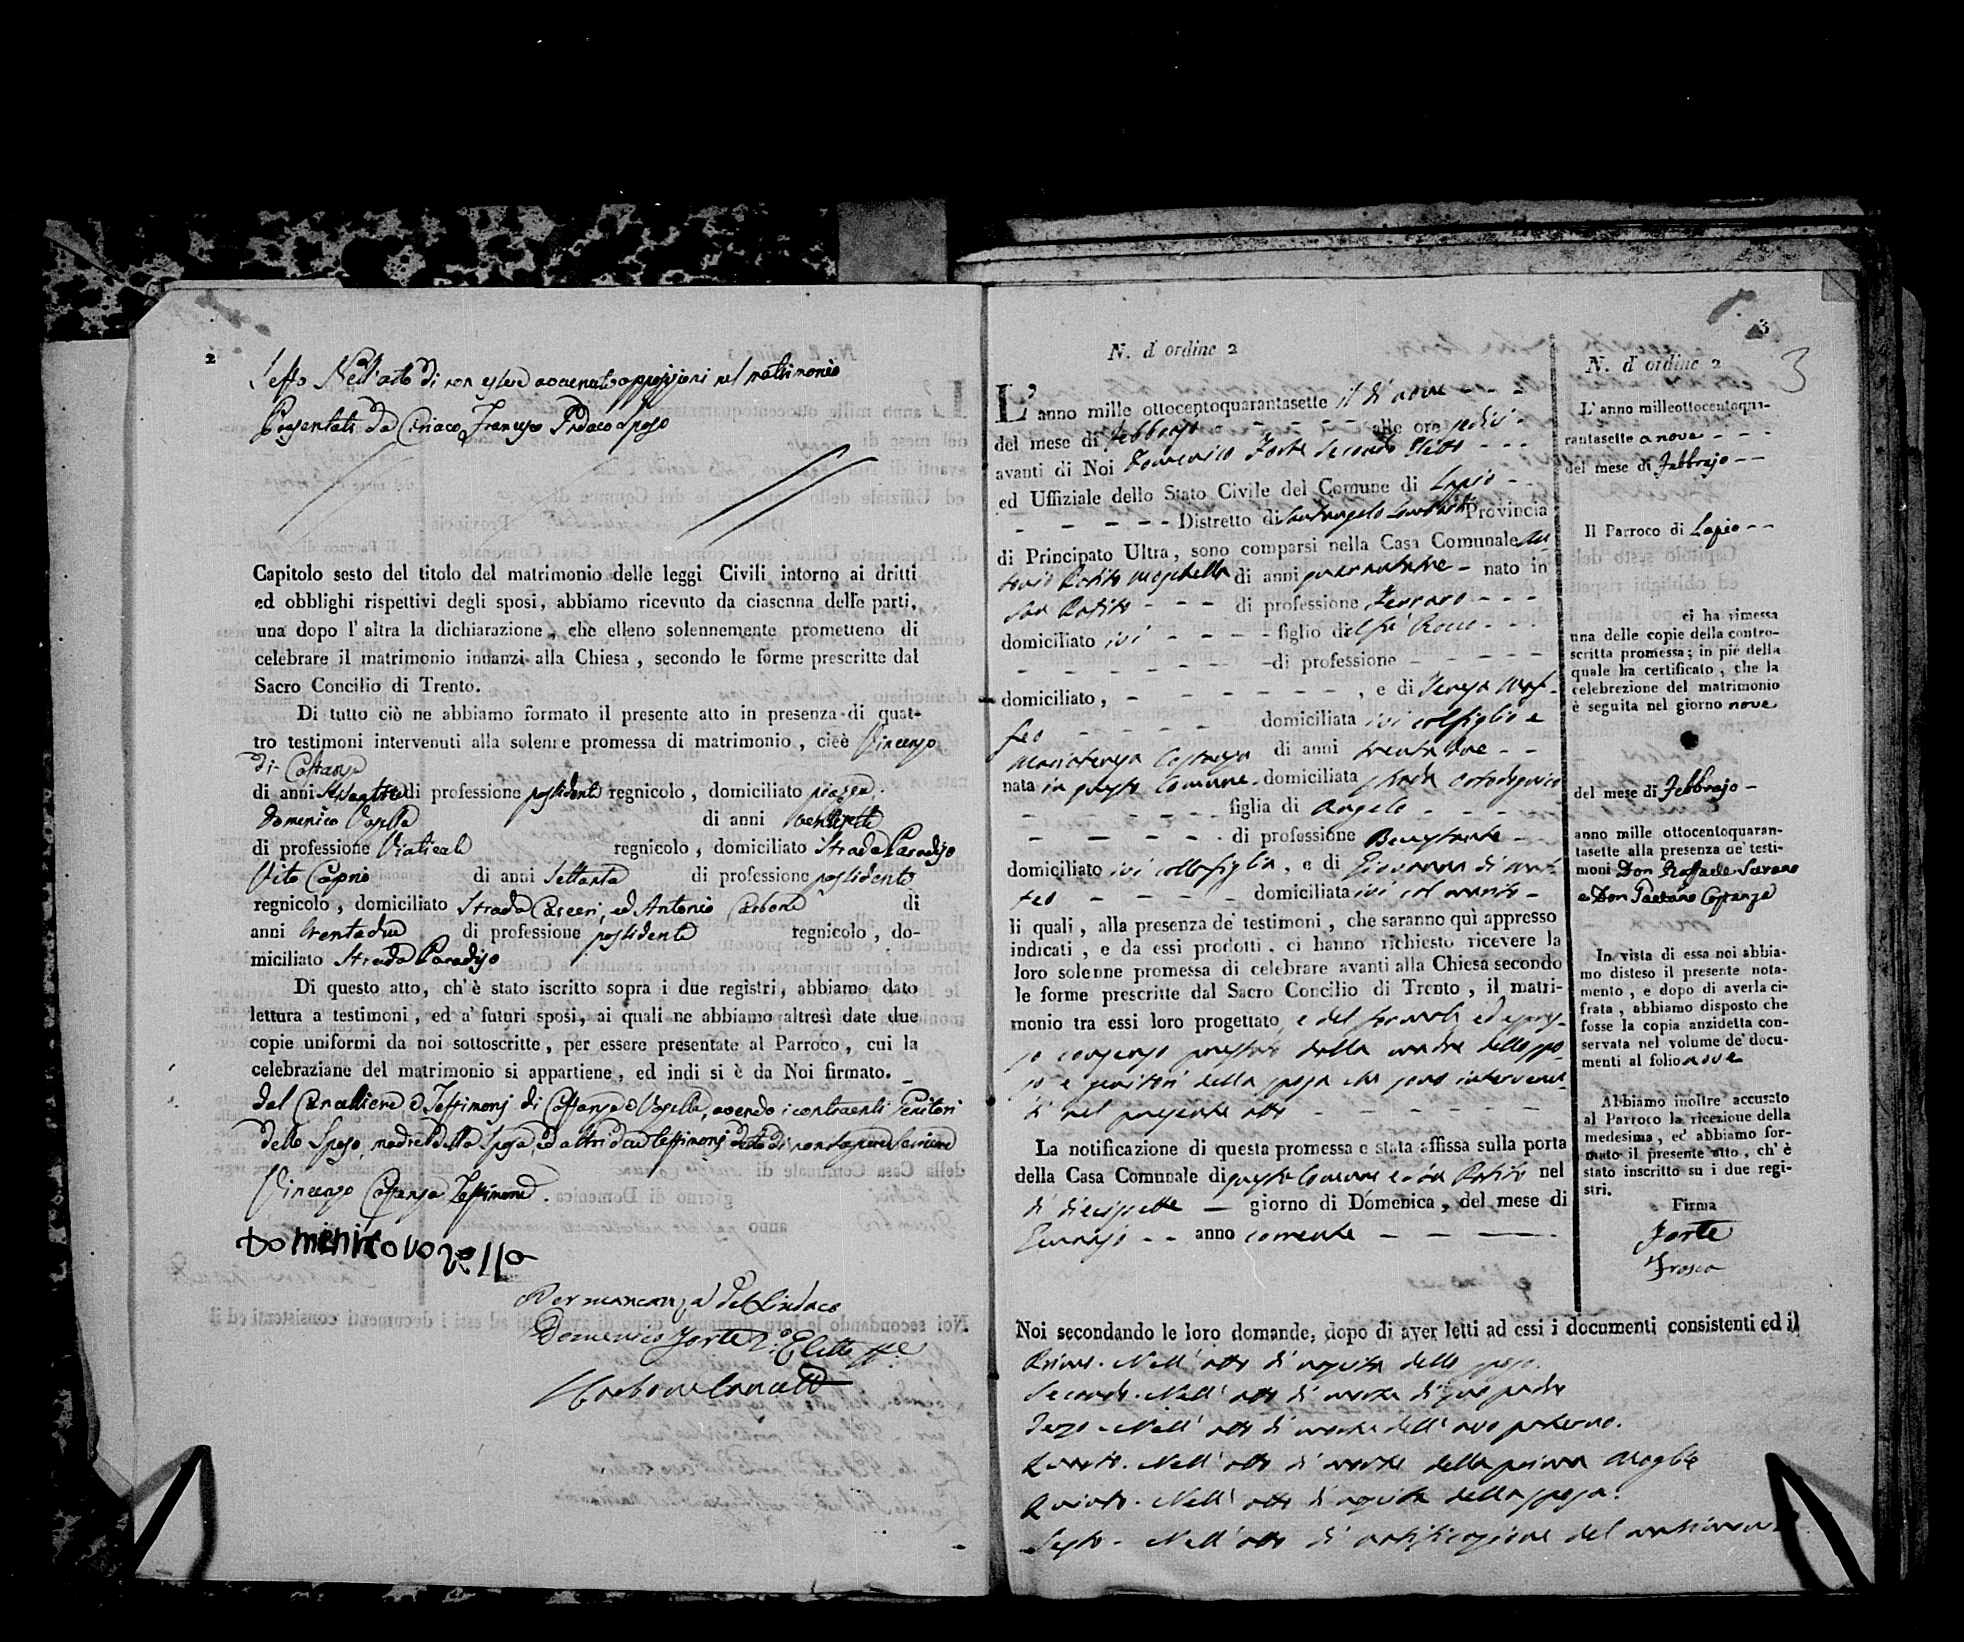 2
Sesto Nell'atto di non esservi avvenuto opposizioni nel matrimonio
Presentati da Ciriaco Francesco Sposo
Capitolo sesto del titolo del matrimonio delle leggi Civili intorno ai dritti
ed obblighi rispettivi degli sposi, abbiamo ricevuto da ciascuna delle parti,
una dopo l'altra la dichiarazione, che elleno solennemente promettono di
celebrare il matrimonio innanzi alla Chiesa, secondo le forme prescritte dal
Sacro Concilio di Trento.
Di tutto ciò ne abbiamo formato il presente atto in presenza di quat-
tro testimoni intervenuti alla solenne promessa di matrimonio, cioè Vincenzo
di Costanzo
di anni di professione possidente regnicolo, domiciliato piazza
Domenico Vozella di anni
di professione Viaticale regnicolo, domiciliato Strada Paradiso
Vito Caprio di anni Settanta di professione possidente
regnicolo, domiciliato Strada Carceri, ed Antonio Carbone di
anni trentadue di professione possidente regnicolo, do-
miciliato Strada Paradiso
Di questo atto, ch'è stato iscritto sopra i due registri, abbiamo dato
lettura a testimoni, ed a' futuri sposi, ai quali ne abbiamo altresì date due
copie uniformi da noi sottoscritte, per essere presentate al Parroco, cui la
celebrazione del matrimonio si appartiene, ed indi si è da Noi firmato.
dal Cancelliere e Testimonj di Costanzo e Vozella, avendo i contraenti Genitori
dello Sposo, madre della Sposa, ed altri due testimonj detto di non sapere scrivere
Vincenzo Costanza Testimone.
Domenico vozella
Per mancanza del Sindaco
Domenico Forte 2.º Eletto
Carbone Cancell
3
3
N. d'ordine 2
L'anno mille ottocentoquarantasette il dì nove
del mese di Febbrajo alle ore sedici
avanti di Noi Domenico Forte Secondo Eletto
ed Uffiziale dello Stato Civile del Comune di Lapio
Distretto di Sant'Angelo Lombardi Provincia
di Principato Ultra, sono comparsi nella Casa Comunale An-
tonio Potito di anni quarantatre nato in
San Potito di professione Ferraro
domiciliato ivi figlio del fu Rocco
di professione
domiciliato, e di Teresa Maf-
feo domiciliata ivi col figlio e
Mariateresa Costanza di anni trentadue
nata in questo Comune domiciliata strada
figlia di Angelo
di professione Benestante
domiciliato ivi colla figlia, e di Giovanna di Mat-
teo domiciliata ivi col marito
li quali, alla presenza de' testimoni, che saranno quì appresso
indicati, e da essi prodotti, ci hanno richiesto ricevere la
loro solenne promessa di celebrare avanti alla Chiesa secondo
le forme prescritte dal Sacro Concilio di Trento, il matri-
monio tra essi loro progettato, e del formale ed espres-
so consenso prestato dalla madre dello spo-
so e genitori della sposa che sono intervenu-
ti nel presente atto
La notificazione di questa promessa e stata affissa sulla porta
della Casa Comunale di questo Comune e in Potito nel
dì diecisette giorno di Domenica, del mese di
Gennajo anno corrente
N. d'ordine 2
L'anno milleottocentoqua-
rantasette a nove
del mese di Febbrajo
Il Parroco di Lapio
ci ha rimessa
una delle copie della contro-
scritta promessa; in piè della
quale ha certificato, che la
celebrezione del matrimonio
è seguita nel giorno nove
del mese di Febbrajo
anno mille ottocentoquaran-
tasette alla presenza de' testi-
moni Don Raffaele Savano
e Don Gaetano Costanza
In vista di essa noi abbia-
mo disteso il presente nota-
mento, e dopo di averla ci-
frata, abbiamo disposto che
fosse la copia anzidetta con-
servata nel volume de' docu-
menti al folio nove
Abbiamo inoltre accusato
al Parroco la ricezione della
medesima, ed abbiamo for-
mato il presente atto, ch'è
stato inscritto su i due regi-
stri.
Firma
Forte
Noi secondando le loro domande, dopo di aver letti ad essi i documenti consistenti ed il
Primo. Nell'atto di nascita dello sposo.
Secondo. Nell'atto di morte di suo padre
Terzo. Nell'atto di morte dell'avo paterno.
Quarto. Nell'atto di morte della prima Moglie
Quinto. Nell'atto di nascita della sposa.
Sesto. Nell'atto di notificazione del matrimonio